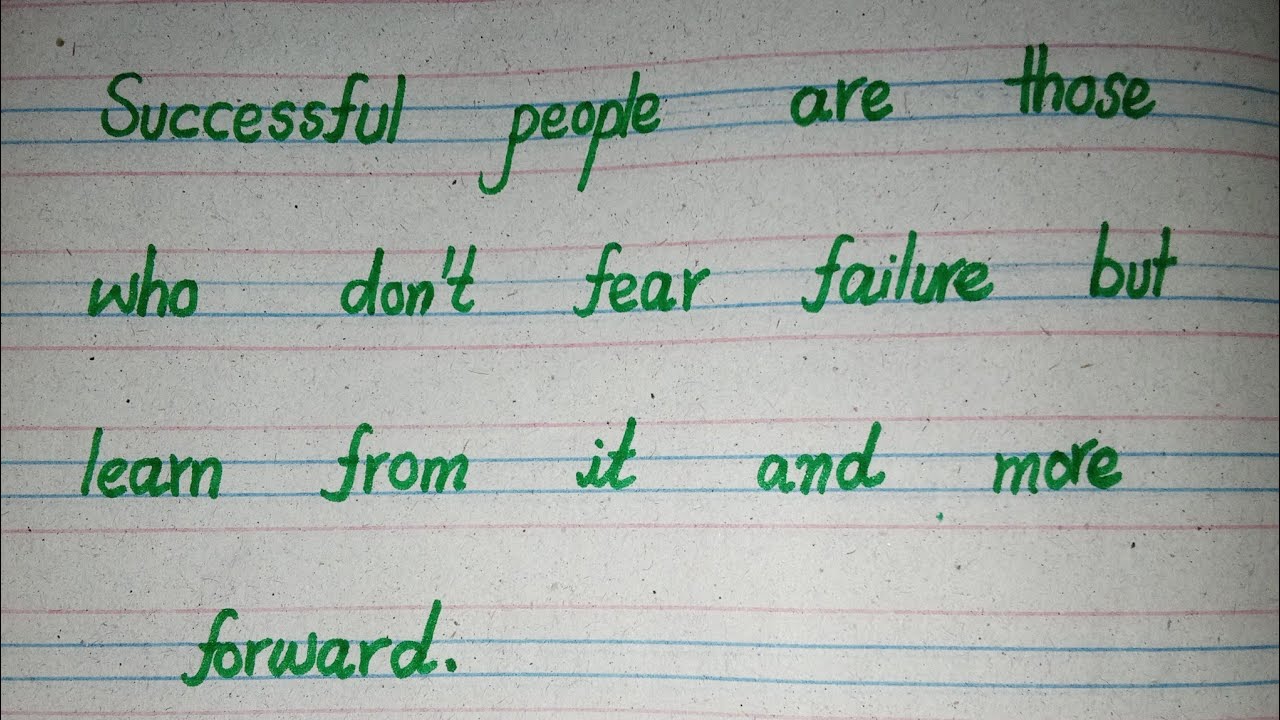 Successful people are those
who don't fear failure but
learn from it and more
forward.